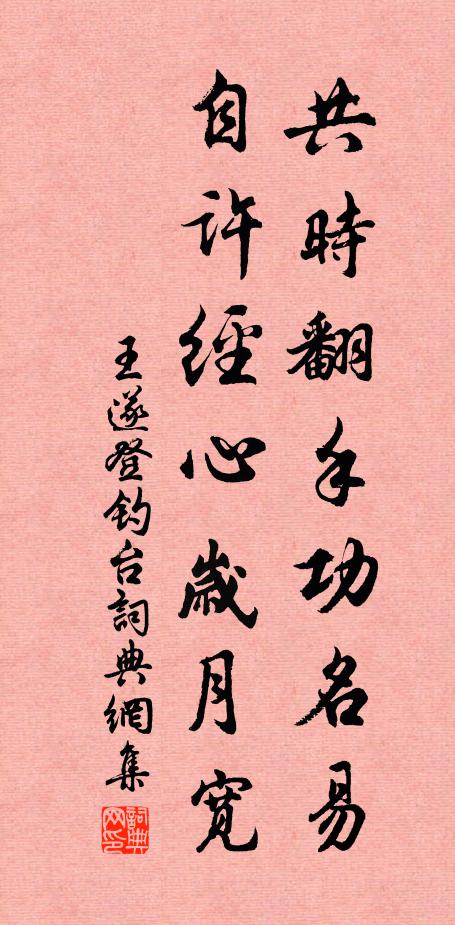 共時翻手功名易
自許經心歲月寬
王遂登釣台詞典網集
詞典网印